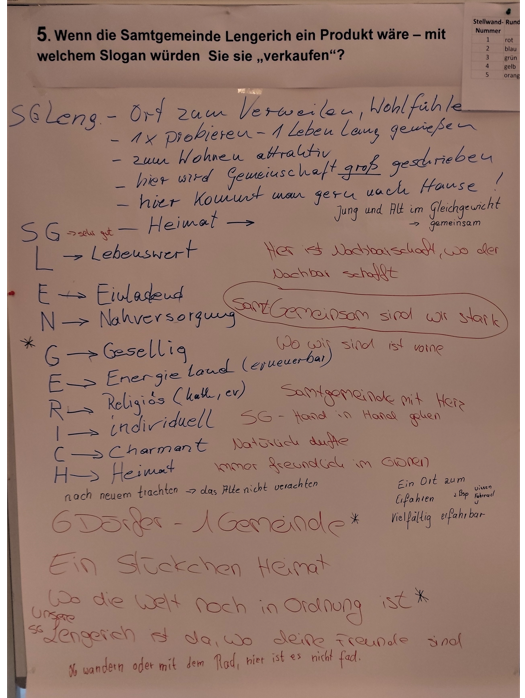 5. Wenn die Samtgemeinde Lengerich ein Produkt wäre – mit
welchem Slogan würden Sie sie „verkaufen“?
Stellwand- Rund
Nummer
1 rot
2 blau
3 grün
4 gelb
5 orang
SG Leng. - Ort zum Verweilen, Wohlfühle
- 1x probieren - 1 Leben lang genießen
- zum Wohnen attraktiv
- hier wird Gemeinschaft groß geschrieben
- hier kommt man gern nach Hause!
Jung und Alt im Gleichgewicht
→ gemeinsam
SG → sehr gut — Heimat →
L → Lebenswert
Hier ist Nachbarschaft, wo der
Nachbar schafft
E → Einladend
N → Nahversorgung
SamtGemeinsam sind wir stark
Wo wir sind ist vorne
* G → Gesellig
E → Energieland (erneuerbar)
R → Religiös (kath., ev)
Samtgemeinde mit Herz
I → individuell
SG - Hand in Hand gehen
C → Charmant
Natürlich dufte
H → Heimat
immer freundlich im Grünen
nach neuem trachten → das Alte nicht verachten
Ein Ort zum
Erfahren
Vielfältig erfahrbar
6 Dörfer - 1 Gemeinde *
Ein Stückchen Heimat
Wo die Welt noch in Ordnung ist *
Unsere
SG Lengerich ist da, wo deine Freunde sind
Ob wandern oder mit dem Rad, hier ist es nicht fad.